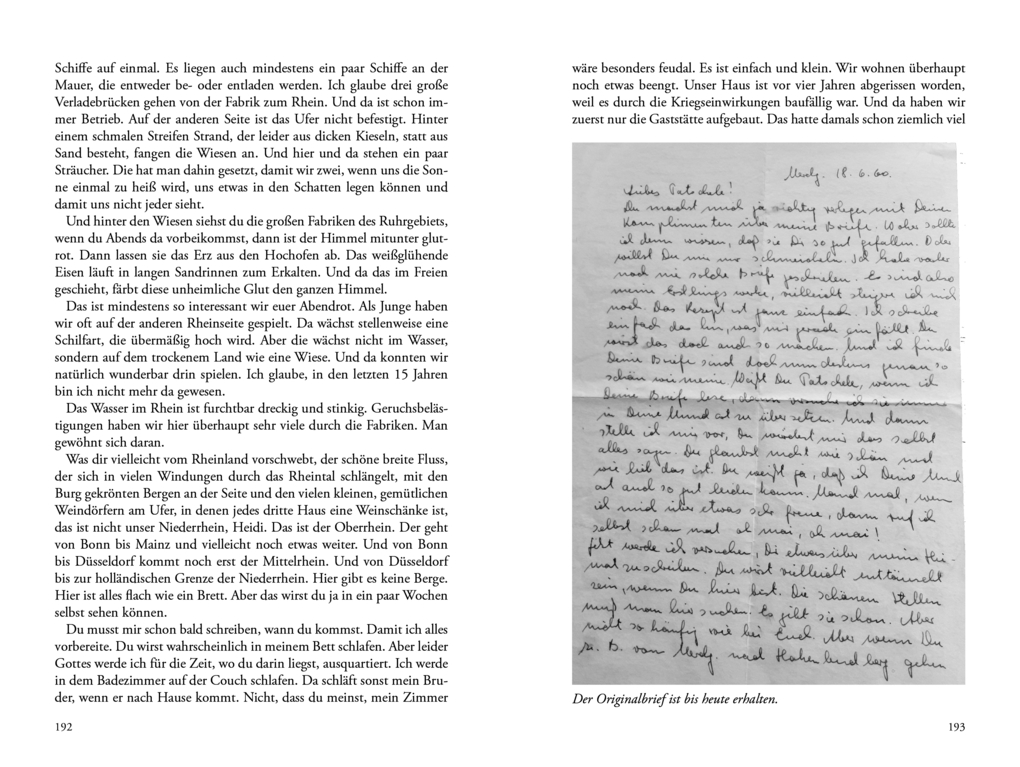 Schiffe auf einmal. Es liegen auch mindestens ein paar Schiffe an der
Mauer, die entweder be- oder entladen werden. Ich glaube drei große
Verladebrücken gehen von der Fabrik zum Rhein. Und da ist schon im-
mer Betrieb. Auf der anderen Seite ist das Ufer nicht befestigt. Hinter
einem schmalen Streifen Strand, der leider aus dicken Kieseln, statt aus
Sand besteht, fangen die Wiesen an. Und hier und da stehen ein paar
Sträucher. Die hat man dahin gesetzt, damit wir zwei, wenn uns die Son-
ne einmal zu heiß wird, uns etwas in den Schatten legen können und
damit uns nicht jeder sieht.
Und hinter den Wiesen siehst du die großen Fabriken des Ruhrgebiets,
wenn du Abends da vorbeikommst, dann ist der Himmel mitunter glut-
rot. Dann lassen sie das Erz aus den Hochofen ab. Das weißglühende
Eisen läuft in langen Sandrinnen zum Erkalten. Und da das im Freien
geschieht, färbt diese unheimliche Glut den ganzen Himmel.
Das ist mindestens so interessant wir euer Abendrot. Als Junge haben
wir oft auf der anderen Rheinseite gespielt. Da wächst stellenweise eine
Schilfart, die übermäßig hoch wird. Aber die wächst nicht im Wasser,
sondern auf dem trockenem Land wie eine Wiese. Und da konnten wir
natürlich wunderbar drin spielen. Ich glaube, in den letzten 15 Jahren
bin ich nicht mehr da gewesen.
Das Wasser im Rhein ist furchtbar dreckig und stinkig. Geruchsbeläs-
tigungen haben wir hier überhaupt sehr viele durch die Fabriken. Man
gewöhnt sich daran.
Was dir vielleicht vom Rheinland vorschwebt, der schöne breite Fluss,
der sich in vielen Windungen durch das Rheintal schlängelt, mit den
Burg gekrönten Bergen an der Seite und den vielen kleinen, gemütlichen
Weindörfern am Ufer, in denen jedes dritte Haus eine Weinschänke ist,
das ist nicht unser Niederrhein, Heidi. Das ist der Oberrhein. Der geht
von Bonn bis Mainz und vielleicht noch etwas weiter. Und von Bonn
bis Düsseldorf kommt noch erst der Mittelrhein. Und von Düsseldorf
bis zur holländischen Grenze der Niederrhein. Hier gibt es keine Berge.
Hier ist alles flach wie ein Brett. Aber das wirst du ja in ein paar Wochen
selbst sehen können.
Du musst mir schon bald schreiben, wann du kommst. Damit ich alles
vorbereite. Du wirst wahrscheinlich in meinem Bett schlafen. Aber leider
Gottes werde ich für die Zeit, wo du darin liegst, ausquartiert. Ich werde
in dem Badezimmer auf der Couch schlafen. Da schläft sonst mein Bru-
der, wenn er nach Hause kommt. Nicht, dass du meinst, mein Zimmer
192
wäre besonders feudal. Es ist einfach und klein. Wir wohnen überhaupt
noch etwas beengt. Unser Haus ist vor vier Jahren abgerissen worden,
weil es durch die Kriegseinwirkungen baufällig war. Und da haben wir
zuerst nur die Gaststätte aufgebaut. Das hatte damals schon ziemlich viel
18.6.60.
Liebes Patschele!
Du machst mich ja richtig verlegen mit Deinen
Komplimenten über meine Briefe. Woher sollte
ich denn wissen, daß sie Dir so gut gefallen. Oder
willst Du mir nur schmeicheln. Ich habe vorher
noch nie solche Briefe geschrieben. Es sind also
meine Erstlingswerke, vielleicht steigere ich mich
noch. Das Rezept ist ganz einfach. Ich schreibe
einfach das hin, was mir gerade einfällt. Du
wirst das doch auch so machen. Und ich finde
Deine Briefe sind doch mindestens genau so
schön wie meine. Weißt Du Patschele, wenn ich
Deine Briefe lese, dann versuche ich sie immer
in Deine Mundart zu übersetzen. Und dann
stelle ich mir vor, Du würdest mir das selbst
alles sagen. Du glaubst nicht wie schön und
wie lieb das ist. Du weißt ja, daß ich Deine Mund
art auch so gut leiden kann. Manchmal, wenn
ich mich über etwas sehr freue, dann ruf ich
selbst schon mal oh mai, oh mai!
Jetzt werde ich versuchen, Dir etwas über meine Hei-
mat zu schreiben. Du wirst vielleicht enttäuscht
sein, wenn Du hier bist. Die schönen Stellen
muß man hier suchen. Es gibt sie schon. Aber
nicht so häufig wie bei Euch. Aber wenn Du
z. B. von nach gehen
Der Originalbrief ist bis heute erhalten.
193